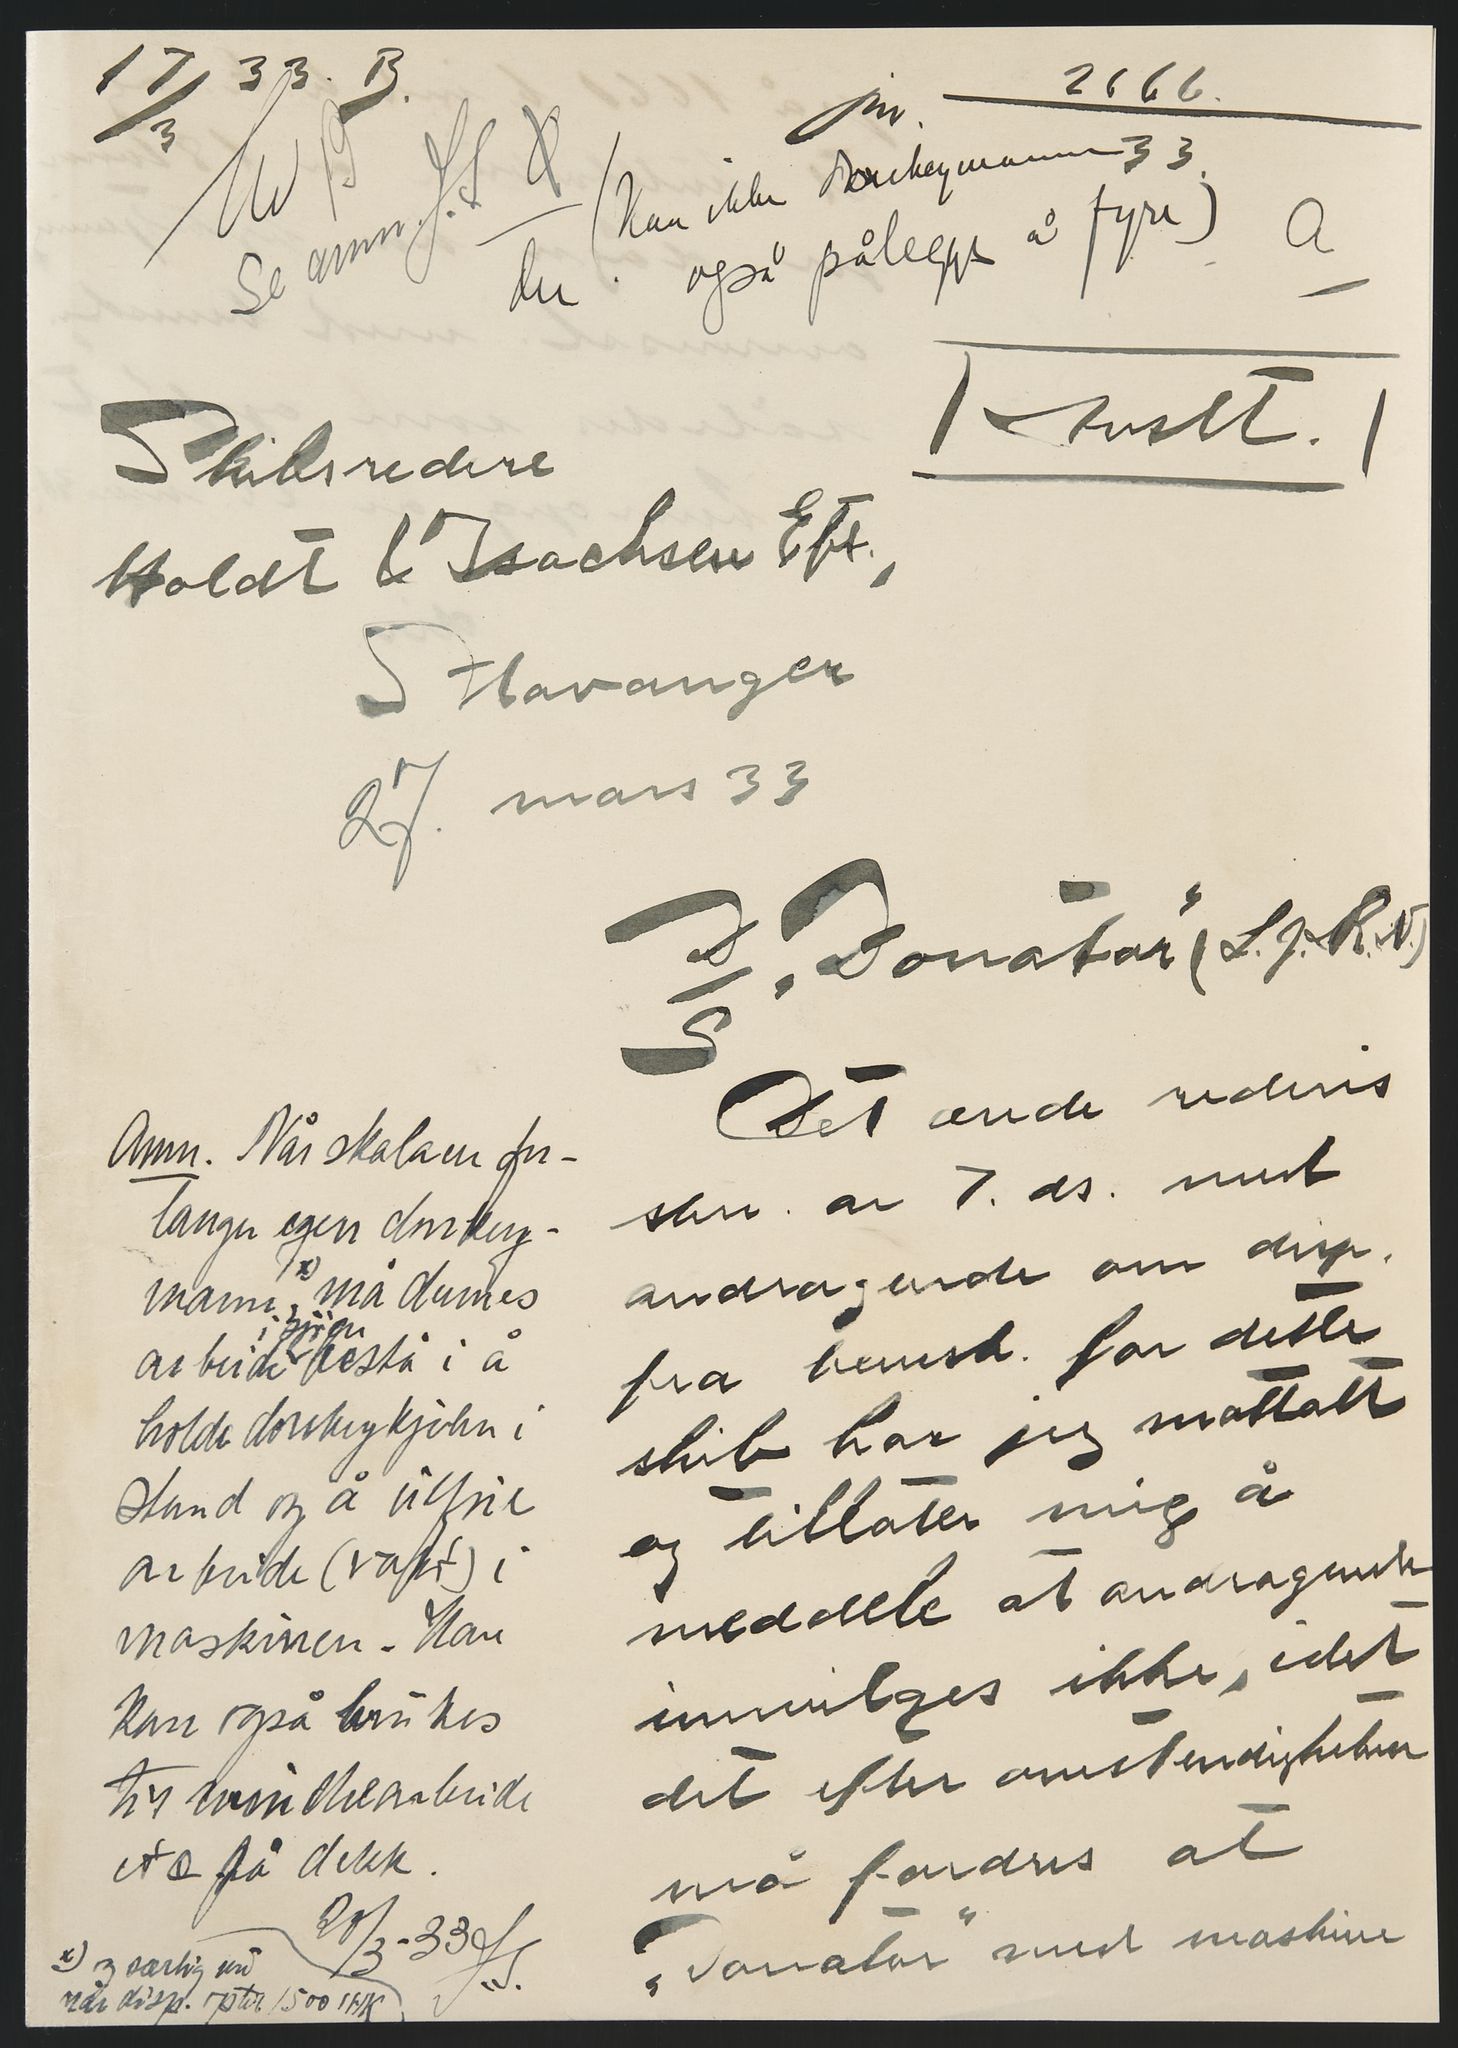 17/3 33. B.
Jnr. 2666
33.
Se anm. J.S.
(Kan ikke donkeymannen
også pålegges å fyre)
A
Skibsredere
Holdt & Isachsen Eftf.,
Stavanger
27. mars 33
D/S "Donator" (L.J.R.N.)
Det ærede rederis
skr. av 7. ds. med
andragende om disp.
fra bemsk. for dette
skib har jeg mottatt
og tillater mig å
meddele at andragende
innvilges ikke, idet
det efter omstendigheten
må fordres at
"Donator" med maskine
Anm. Når skalaen for-
langer egen donkey-
mann, x) må dennes
arbeide i sjøen bestå i å
holde donkeykjelen i
stand og å utføre
arbeide (vakt) i
maskinen. Han
kan også brukes
til winchearbeide
etc på dekk.
20/3-33 J.S.
x) og særlig nu
når disp. opter 1500 IHK